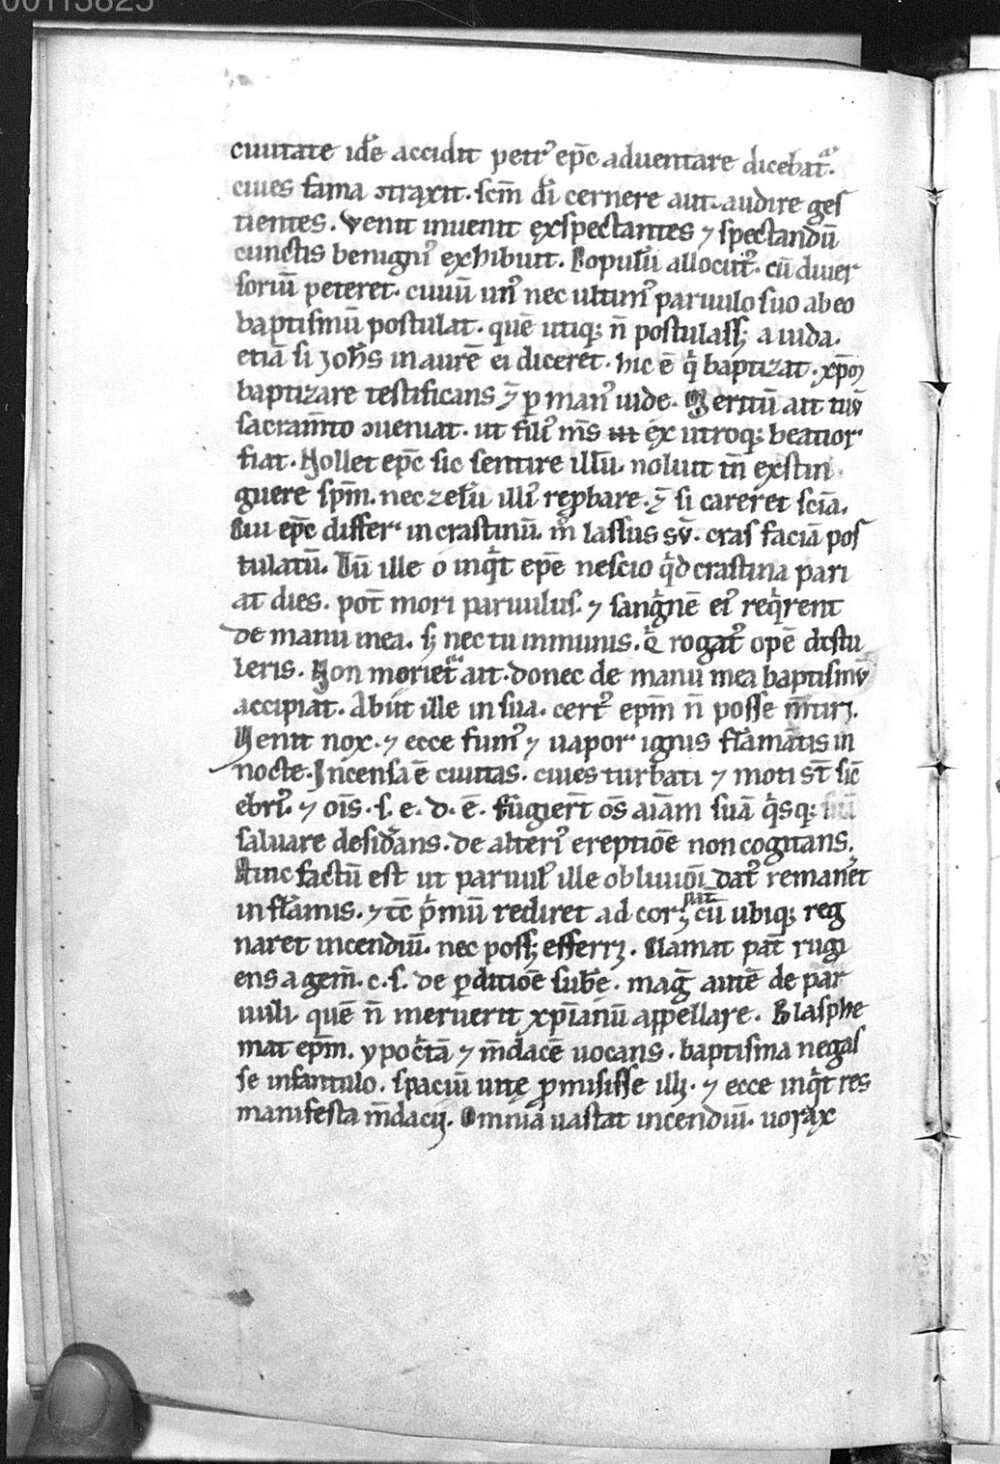 00113825
ciuitate idē accidit petr᷒ ep̄c aduentare dicebat᷒.
ciues fama ɔtraxit. scm̄ dī cernere aut audire ges
tientes. Venit inuenit exspectantes ⁊ spectandū
cunctis benignꝰ exhibuit. Populū allocutꝰ. cū diuer
soriū peteret. ciuiū unꝰ nec ultimꝰ paruulo suo ab eo
baptismū postulat. quē utiq; n̄ postulass; a iuda.
etiā si joh̄s in aurē ei diceret. hic ē q̇ baptizat. xp̄m
baptizare testificans ⁊̄ p manꝰ iude. Meritū ait tuū
sacram̄to ɔueniat. ut filiꝰ m̄s ex utroq; beatior
fiat. Nollet ep̄c sic sentire illū. noluit tn̄ exstin
guere sp̄m. nec zelū illiꝰ reꝓbare. ⁊̄ si careret sciā.
Cui ep̄c differ in crastinū. m̊ lassus sū. cras faciā pos
tulatū. Cū ille o inq̇t ep̄e nescio q̇d crastina pari
at dies. pot̄ mori paruulus. ⁊ sanġnē eiꝰ req̇rent
de manu mea. s; nec tu inmunis. q̇ rogatꝰ opē distu
leris. Non moriet᷒ ait. donec de manu mea baptismū
accipiat. Abiit ille in sua. certꝰ ep̄m n̄ posse m̄tiri.
Venit nox. ⁊ ecce fumꝰ ⁊ uapor ignis flāmātis in
nocte. Incensa ē ciuitas. ciues turbati ⁊ moti st̄ sic̄
ebriꝰ. ⁊ oīs. s. e. d. ē. Fūgier̄t os̄ aīam suā q̇sq;
saluare desid̄ans. de alteriꝰ ereptiōe non cogitans.
Hinc factū est ut paruulꝰ ille obliuiōi datꝰ remaneret
in flāmis. ⁊ tc̄ p̄mū rediret ad cor pat̄ cū ubiq; reg
naret incendiū. nec poss; efferri. Clamat pat̄ rugi
ens a gem̄. c. s. de ꝑditiōe sub̄e. mag̃ autē de par
uuli quē n̄ meruerit xp̄ianū appellare. Blasphe
mat ep̄m. ypoc̄tā ⁊ m̄dacē uocans. baptisma negas
se infantulo. spaciū uite ꝓmisisse illi. ⁊ ecce inq̇t res
manifesta m̄dacij. Omnia uastat incendiū. uorax